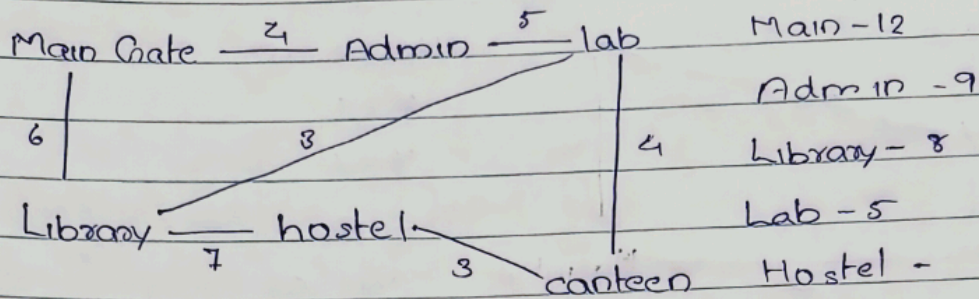 Main Gate 4 Admin 5 lab Main - 12
Admin - 9
6 3 4 Library - 8
Lab - 5
Library 7 hostel 3 canteen Hostel -